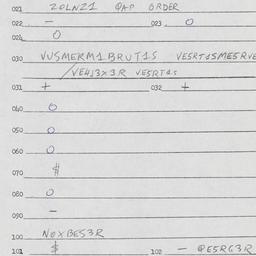 021 20LNZ1 QAP ORDER
022 – 023 O
024 O
030 VUSMERM1BRUT1S VESRT1SMESRVE
/VE4J3X3R VESRT1S
031 + 032 +
040 O
050 O
060 O
070 $
080 O
090 –
100 NOXBES3R
101 $ 102 – QESRG3R